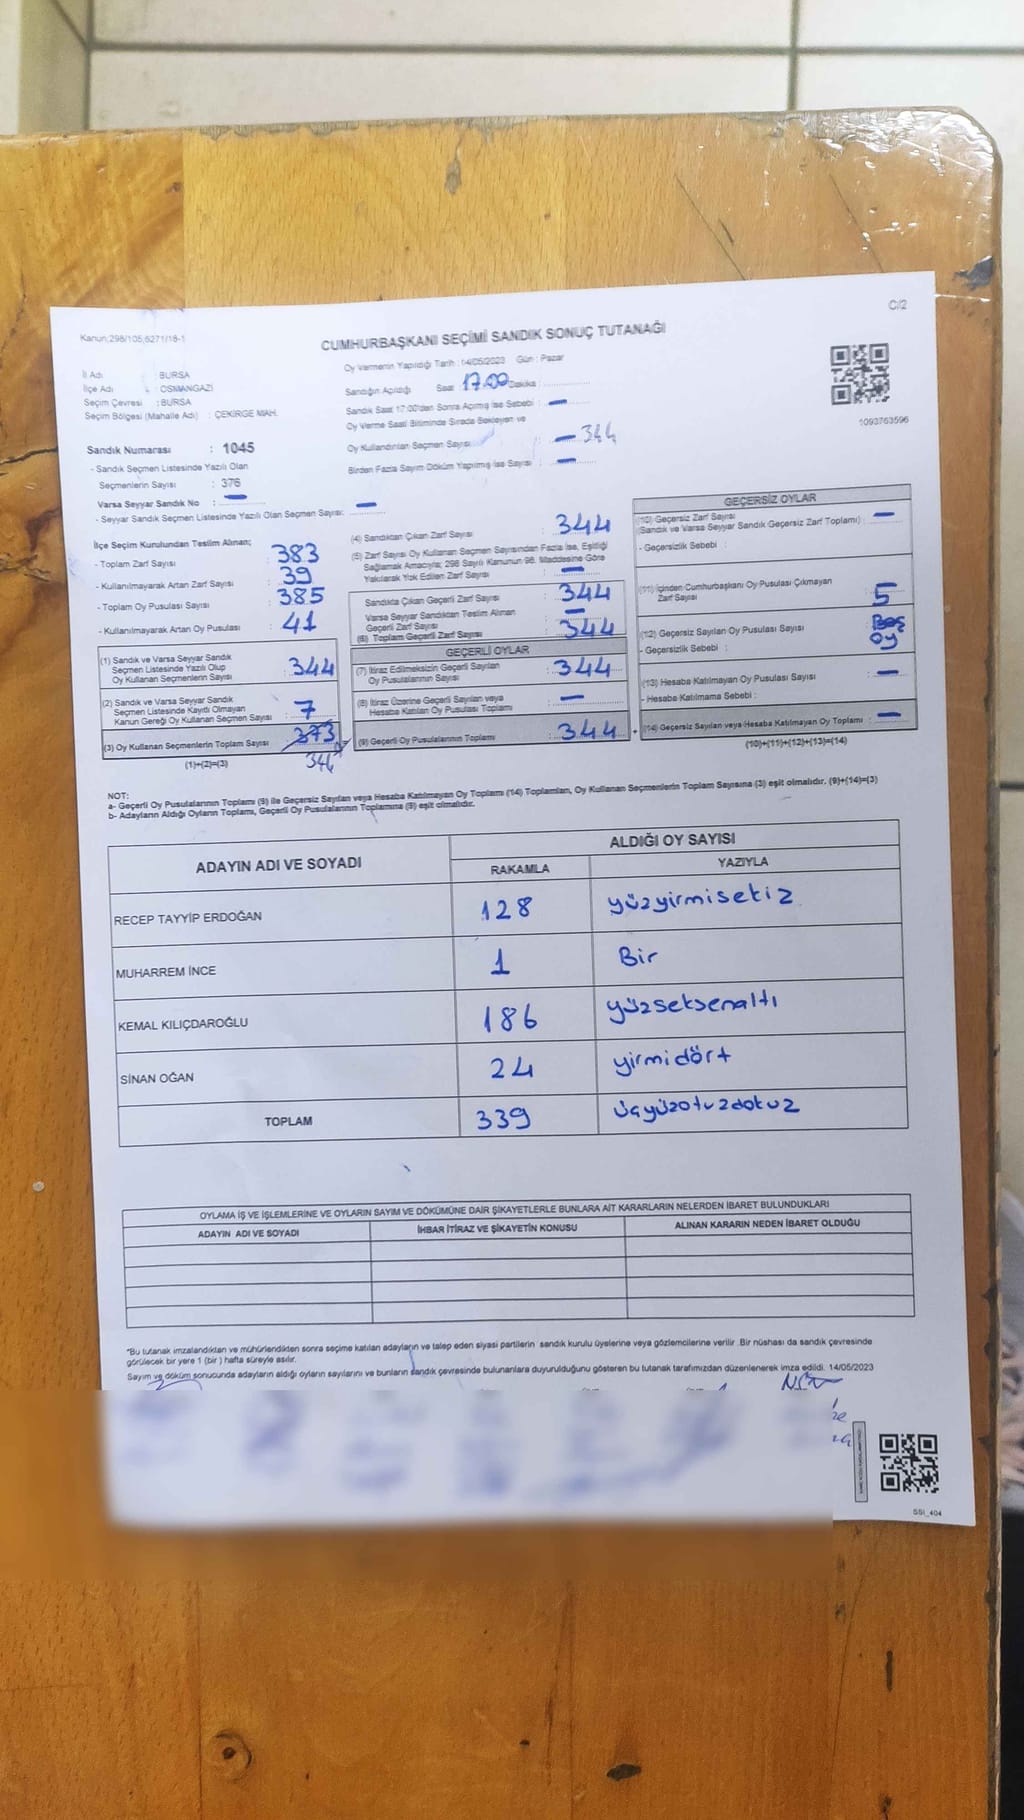 C/2
Kanun:298/105,6271/18-1
CUMHURBAŞKANI SEÇİMİ SANDIK SONUÇ TUTANAĞI
İl Adı : BURSA
İlçe Adı : OSMANGAZİ
Seçim Çevresi : BURSA
Seçim Bölgesi (Mahalle Adı) : ÇEKİRGE MAH.
Sandık Numarası : 1045
- Sandık Seçmen Listesinde Yazılı Olan
Seçmenlerin Sayısı : 376
Varsa Seyyar Sandık No : —
- Seyyar Sandık Seçmen Listesinde Yazılı Olan Seçmen Sayısı: —
Oy Vermenin Yapıldığı Tarih : 14/05/2023 Gün : Pazar
Sandığın Açıldığı Saat 17.00 Dakika
Sandık Saat 17:00'den Sonra Açılmış İse Sebebi : —
Oy Verme Saati Bitiminde Sırada Bekleyen ve
Oy Kullandırılan Seçmen Sayısı : — 344
Birden Fazla Sayım Döküm Yapılmış İse Sayısı : —
1093763596
İlçe Seçim Kurulundan Teslim Alınan;
- Toplam Zarf Sayısı : 383
- Kullanılmayarak Artan Zarf Sayısı : 39
- Toplam Oy Pusulası Sayısı : 385
- Kullanılmayarak Artan Oy Pusulası : 41
(1) Sandık ve Varsa Seyyar Sandık
Seçmen Listesinde Yazılı Olup
Oy Kullanan Seçmenlerin Sayısı : 344
(2) Sandık ve Varsa Seyyar Sandık
Seçmen Listesinde Kayıtlı Olmayan
Kanun Gereği Oy Kullanan Seçmen Sayısı : 7
(3) Oy Kullanan Seçmenlerin Toplam Sayısı : 373
(1)+(2)=(3) 344
(4) Sandıktan Çıkan Zarf Sayısı : 344
(5) Zarf Sayısı Oy Kullanan Seçmen Sayısından Fazla İse, Eşitliği
Sağlamak Amacıyla; 298 Sayılı Kanunun 98. Maddesine Göre
Yakılarak Yok Edilen Zarf Sayısı : —
Sandıkta Çıkan Geçerli Zarf Sayısı : 344
Varsa Seyyar Sandıktan Teslim Alınan
Geçerli Zarf Sayısı : —
(6) Toplam Geçerli Zarf Sayısı : 344
GEÇERLİ OYLAR
(7) İtiraz Edilmeksizin Geçerli Sayılan
Oy Pusulasının Sayısı : 344
(8) İtiraz Üzerine Geçerli Sayılan veya
Hesaba Katılan Oy Pusulası Toplamı : —
(9) Geçerli Oy Pusulalarının Toplamı : 344
GEÇERSİZ OYLAR
(10) Geçersiz Zarf Sayısı
(Sandık ve Varsa Seyyar Sandık Geçersiz Zarf Toplamı) : —
- Geçersizlik Sebebi :
(11) İçinden Cumhurbaşkanı Oy Pusulası Çıkmayan
Zarf Sayısı : 5
(12) Geçersiz Sayılan Oy Pusulası Sayısı : Boş
- Geçersizlik Sebebi : oy
(13) Hesaba Katılmayan Oy Pusulası Sayısı : —
- Hesaba Katılmama Sebebi :
(14) Geçersiz Sayılan veya Hesaba Katılmayan Oy Toplamı : —
(10)+(11)+(12)+(13)=(14)
NOT:
a- Geçerli Oy Pusulalarının Toplamı (9) ile Geçersiz Sayılan veya Hesaba Katılmayan Oy Toplamı (14) Toplamları, Oy Kullanan Seçmenlerin Toplam Sayısına (3) eşit olmalıdır. (9)+(14)=(3)
b- Adayların Aldığı Oyların Toplamı, Geçerli Oy Pusulalarının Toplamına (9) eşit olmalıdır.
ADAYIN ADI VE SOYADI
ALDIĞI OY SAYISI
RAKAMLA YAZIYLA
RECEP TAYYİP ERDOĞAN 128 yüzyirmisekiz
MUHARREM İNCE 1 Bir
KEMAL KILIÇDAROĞLU 186 yüzseksenaltı
SİNAN OĞAN 24 yirmidört
TOPLAM 339 üçyüzotuzdokuz
OYLAMA İŞ VE İŞLEMLERİNE VE OYLARIN SAYIM VE DÖKÜMÜNE DAİR ŞİKAYETLERLE BUNLARA AİT KARARLARIN NELERDEN İBARET BULUNDUKLARI
ADAYIN ADI VE SOYADI İHBAR İTİRAZ VE ŞİKAYETİN KONUSU ALINAN KARARIN NEDEN İBARET OLDUĞU
*Bu tutanak imzalandıktan ve mühürlendikten sonra seçime katılan adayların ve talep eden siyasi partilerin sandık kurulu üyelerine veya gözlemcilerine verilir. Bir nüshası da sandık çevresinde
görülecek bir yere 1 (bir ) hafta süreyle asılır.
Sayım ve döküm sonucunda adayların aldığı oyların sayılarını ve bunların sandık çevresinde bulunanlara duyurulduğunu gösteren bu tutanak tarafımızdan düzenlenerek imza edildi. 14/05/2023
SSI_404